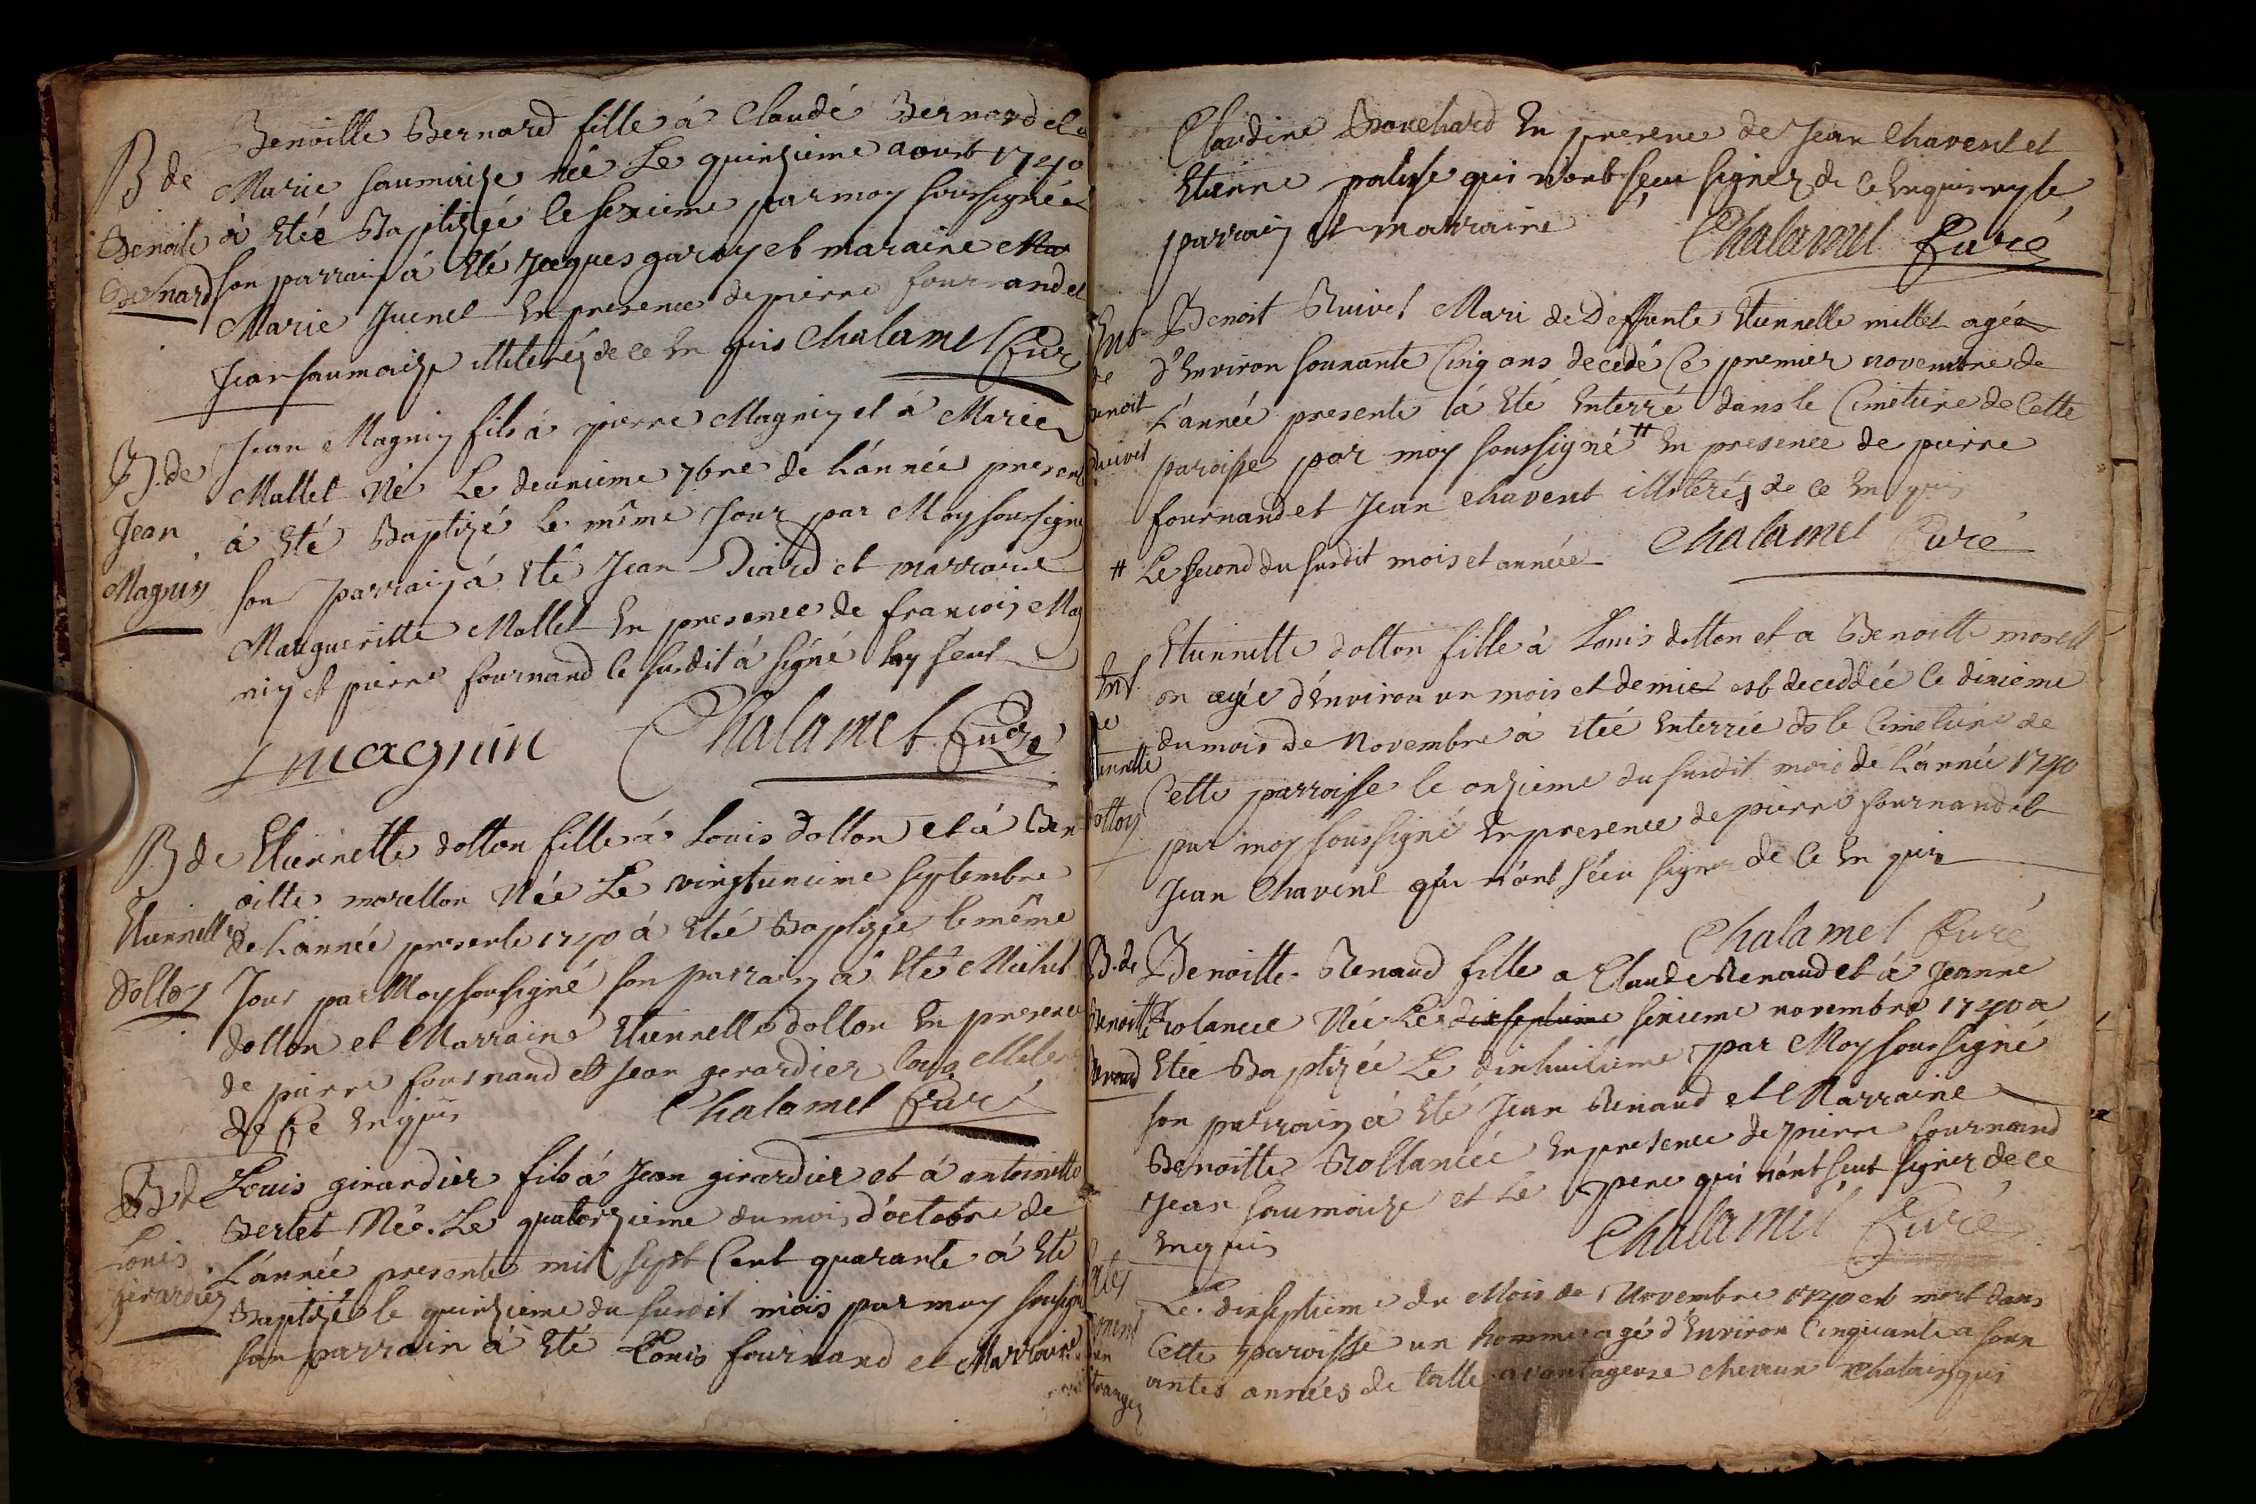 B de
Benoite
Bernard
Benoitte Bernard fille à Claude Bernard et a
Marie saumaize née Le quinzieme aoust 1740
à Etée Baptizée le sezieme par moy soussignée
son parrain à Eté Jacques garay et maraine
Marie Juenet En presence de pierre fournand et
Jean saumaize illiterés de ce En quis Chalamet Curé
B. de
Jean
Magnin
Jean Magnin fils à pierre Magnin et à Marie
Mallet Né Le deuxieme 7bre de L'année present
à Eté Baptizé le même Jour par Moy soussigné
son parrain à Eté Jean Diard et marraine
Margueritte Mallet En presence de francois Mag
nin et pierre fournand le susdit à signé
J magnin Chalamet Curé
B de
Etiennette
dolton
Etiennette dolton fille à Louis dolton et à Ben
oitte morellon Née Le vingtunieme septembre
de L'année presente 1740 à Etée Baptizée le même
Jour par Moy sousigné son parrain à Eté Michel
dolton et Marraine Etiennette dolton En presence
de pierre fournand et Jean gerardier
de Ce Enquis Chalamet Curé
B de
Louis
girardier
Louis girardier fils à Jean girardier et à antoinette
Berlet Né Le quatorzieme du mois d'octobre de
L'année presente mil sept Cent quarante à Eté
Baptizé le quinzieme du susdit mois par moy sousigné
son parrain à Eté Louis fournand et Marraine
Claudine Bouchard En presence de Jean Chavent et
Etienne palize qui n'ont sçeu signer de ce Enquis
parrain et marraine Chalamet Curé
Ent
de
Benoit
Benoit Ruivet Mari de Deffunte Etiennette millet agée
d'Environ soixante Cinq ans decedé Le premier novembre de
L'année presente à Eté Enterré dans le Cimetiere de Cette
paroisse par moy soussigné # En presence de pierre
fournand et Jean Chavent illiterés de ce En quis
# Le second du susdit mois et année Chalamet Curé
Ent
de
Etiennette
dolton
Etiennette dolton fille à Louis dolton et a Benoitte morell
on agée d'Environ un mois et demie est deceddée le dixieme
du mois de Novembre à Etée Enterrée ds le Cimetiere de
Cette parroisse le onzieme du susdit mois de L'année 1740
par moy soussigné En presence de pierre fournand et
Jean Chavent qui n'ont sceu signer de ce En quis
Chalamet Curé
B. de
Benoitte
Renaud
Benoitte Renaud fille a Claude Renaud et à Jeanne
Rolancee Née Le dixseptieme sixieme novembre 1740 a
Etée Baptizée Le dixhuitieme par Moy soussigné
son parrain à Eté Jean Renaud et Marraine
Benoitte Rollancée En presence de pierre fournand
Jean saumaize et Le pere qui n'ont sceut signer de ce
Enquis Chalamet Curé
Le dixseptieme du Mois de Novembre 1740 est mort dans
Cette paroisse un homme agé d'Environ Cinquante a soix
antes années de taille avantageuse cheveux Chatain qui